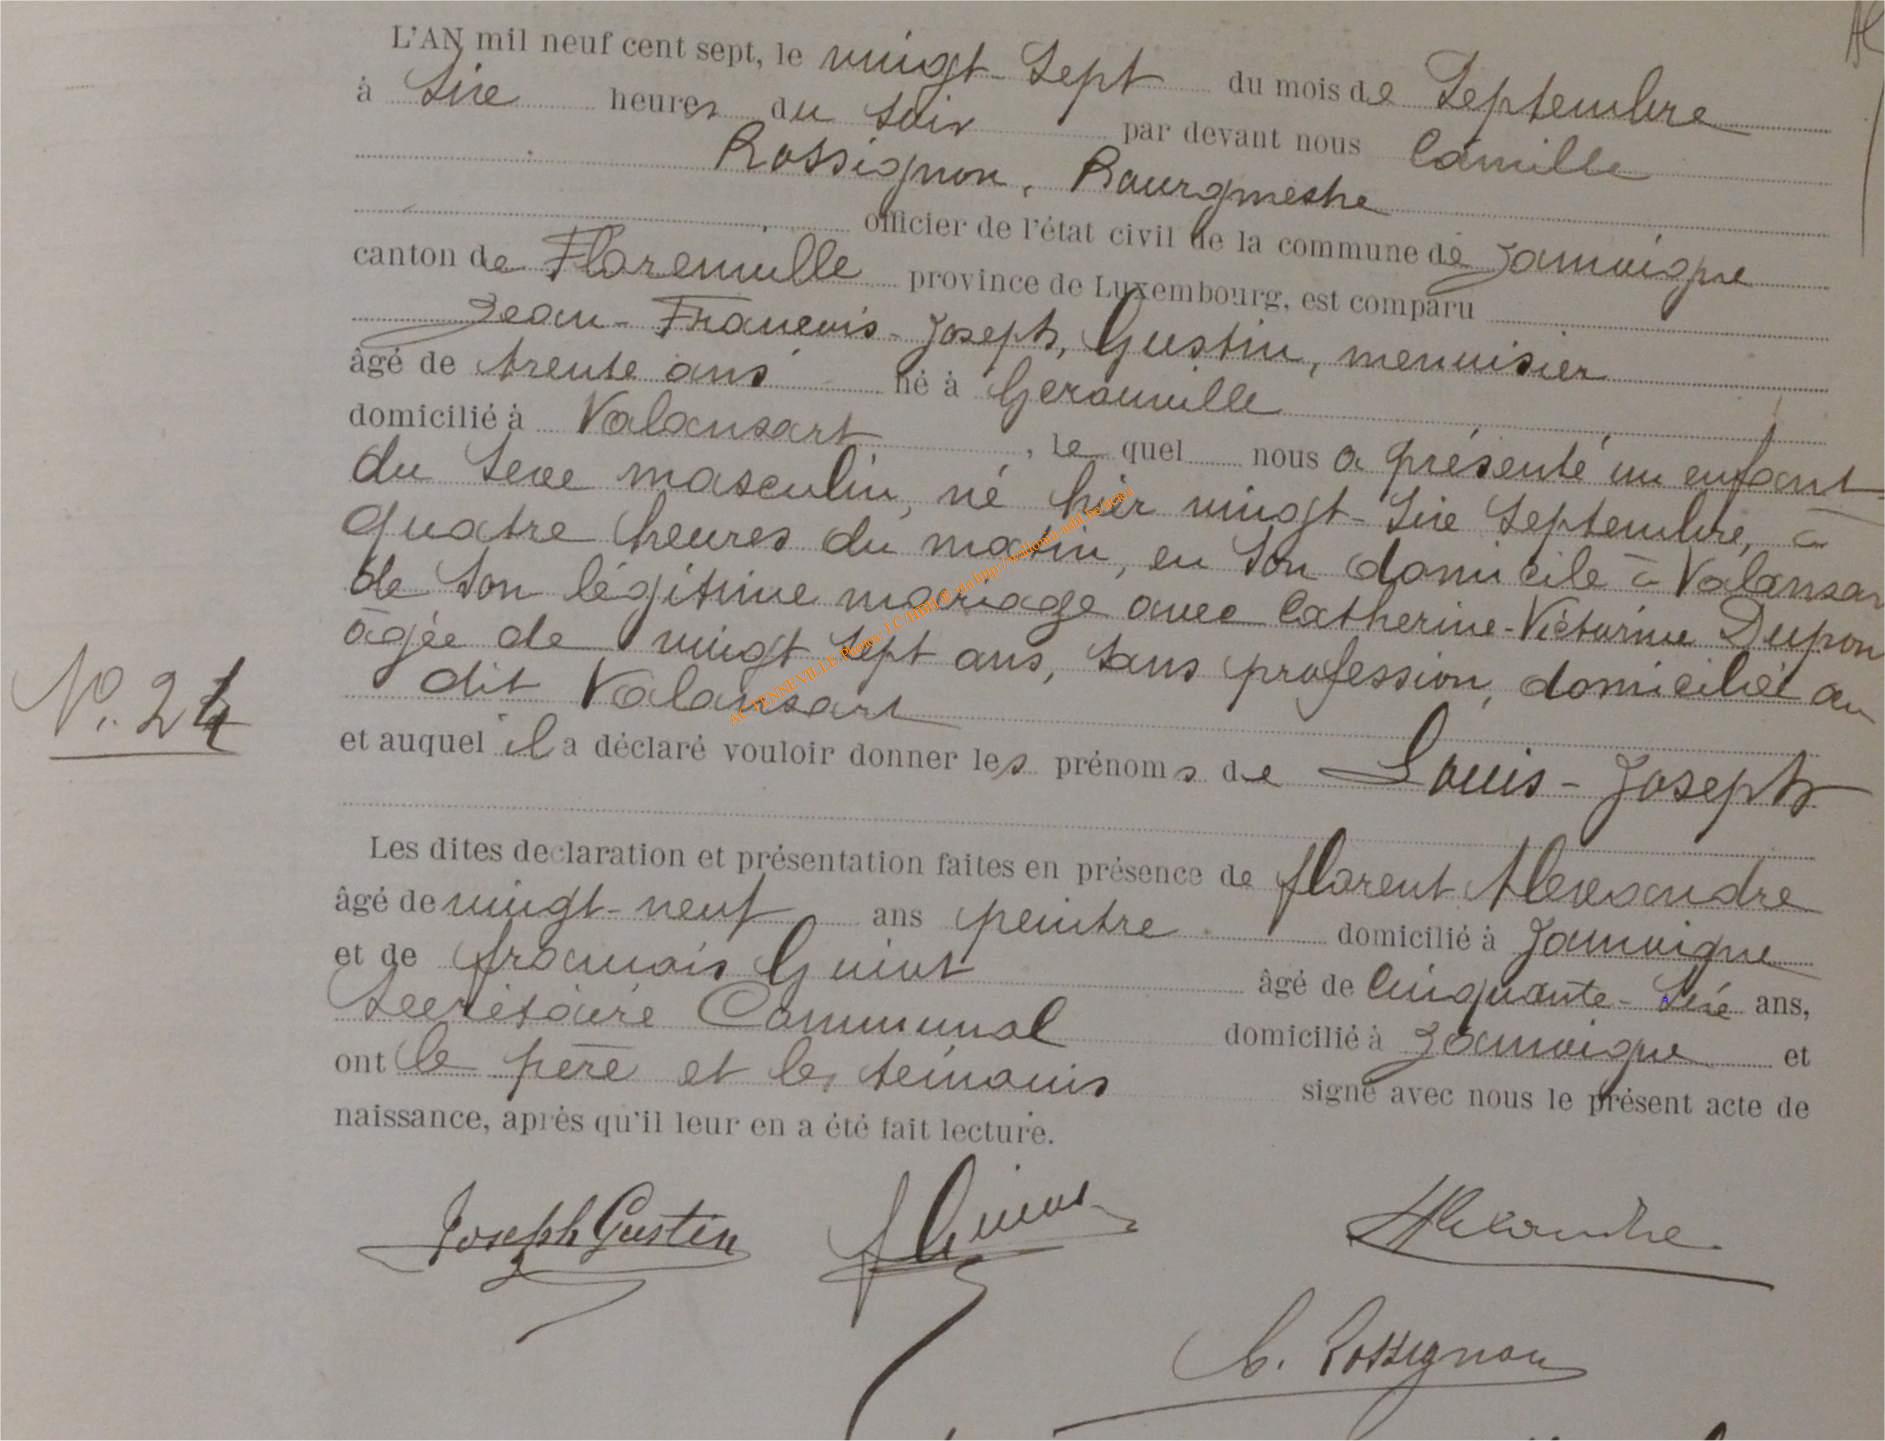 L'AN mil neuf cent sept, le vingt-sept du mois de Septembre
à Six heures du Soir par devant nous Camille
Rossignon, Bourgmestre
officier de l'état civil de la commune de Jamoigne
canton de Florenville province de Luxembourg, est comparu
Jean-François-Joseph, Gustin, menuisier
âgé de trente ans né à Gerouville
domicilié à Valansart, le quel nous a présenté un enfant
du sexe masculin, né hier vingt-six Septembre, à
quatre heures du matin, en son domicile à Valansar
de son légitime mariage avec Catherine-Victorine Dupon
âgée de vingt sept ans, sans profession, domiciliée au
dit Valansart
N°. 24
et auquel il a déclaré vouloir donner les prénoms de Louis-Joseph
Les dites declaration et présentation faites en présence de florent Alexandre
âgé de vingt-neuf ans peintre domicilié à Jamoigne
et de françois Guiot âgé de Cinquante-six ans,
Secrétaire Communal domicilié à Jamoigne et
ont le père et les témoins signé avec nous le présent acte de
naissance, après qu'il leur en a été fait lecture.
Joseph Gustin f Guiot Alexandre
C. Rossignon